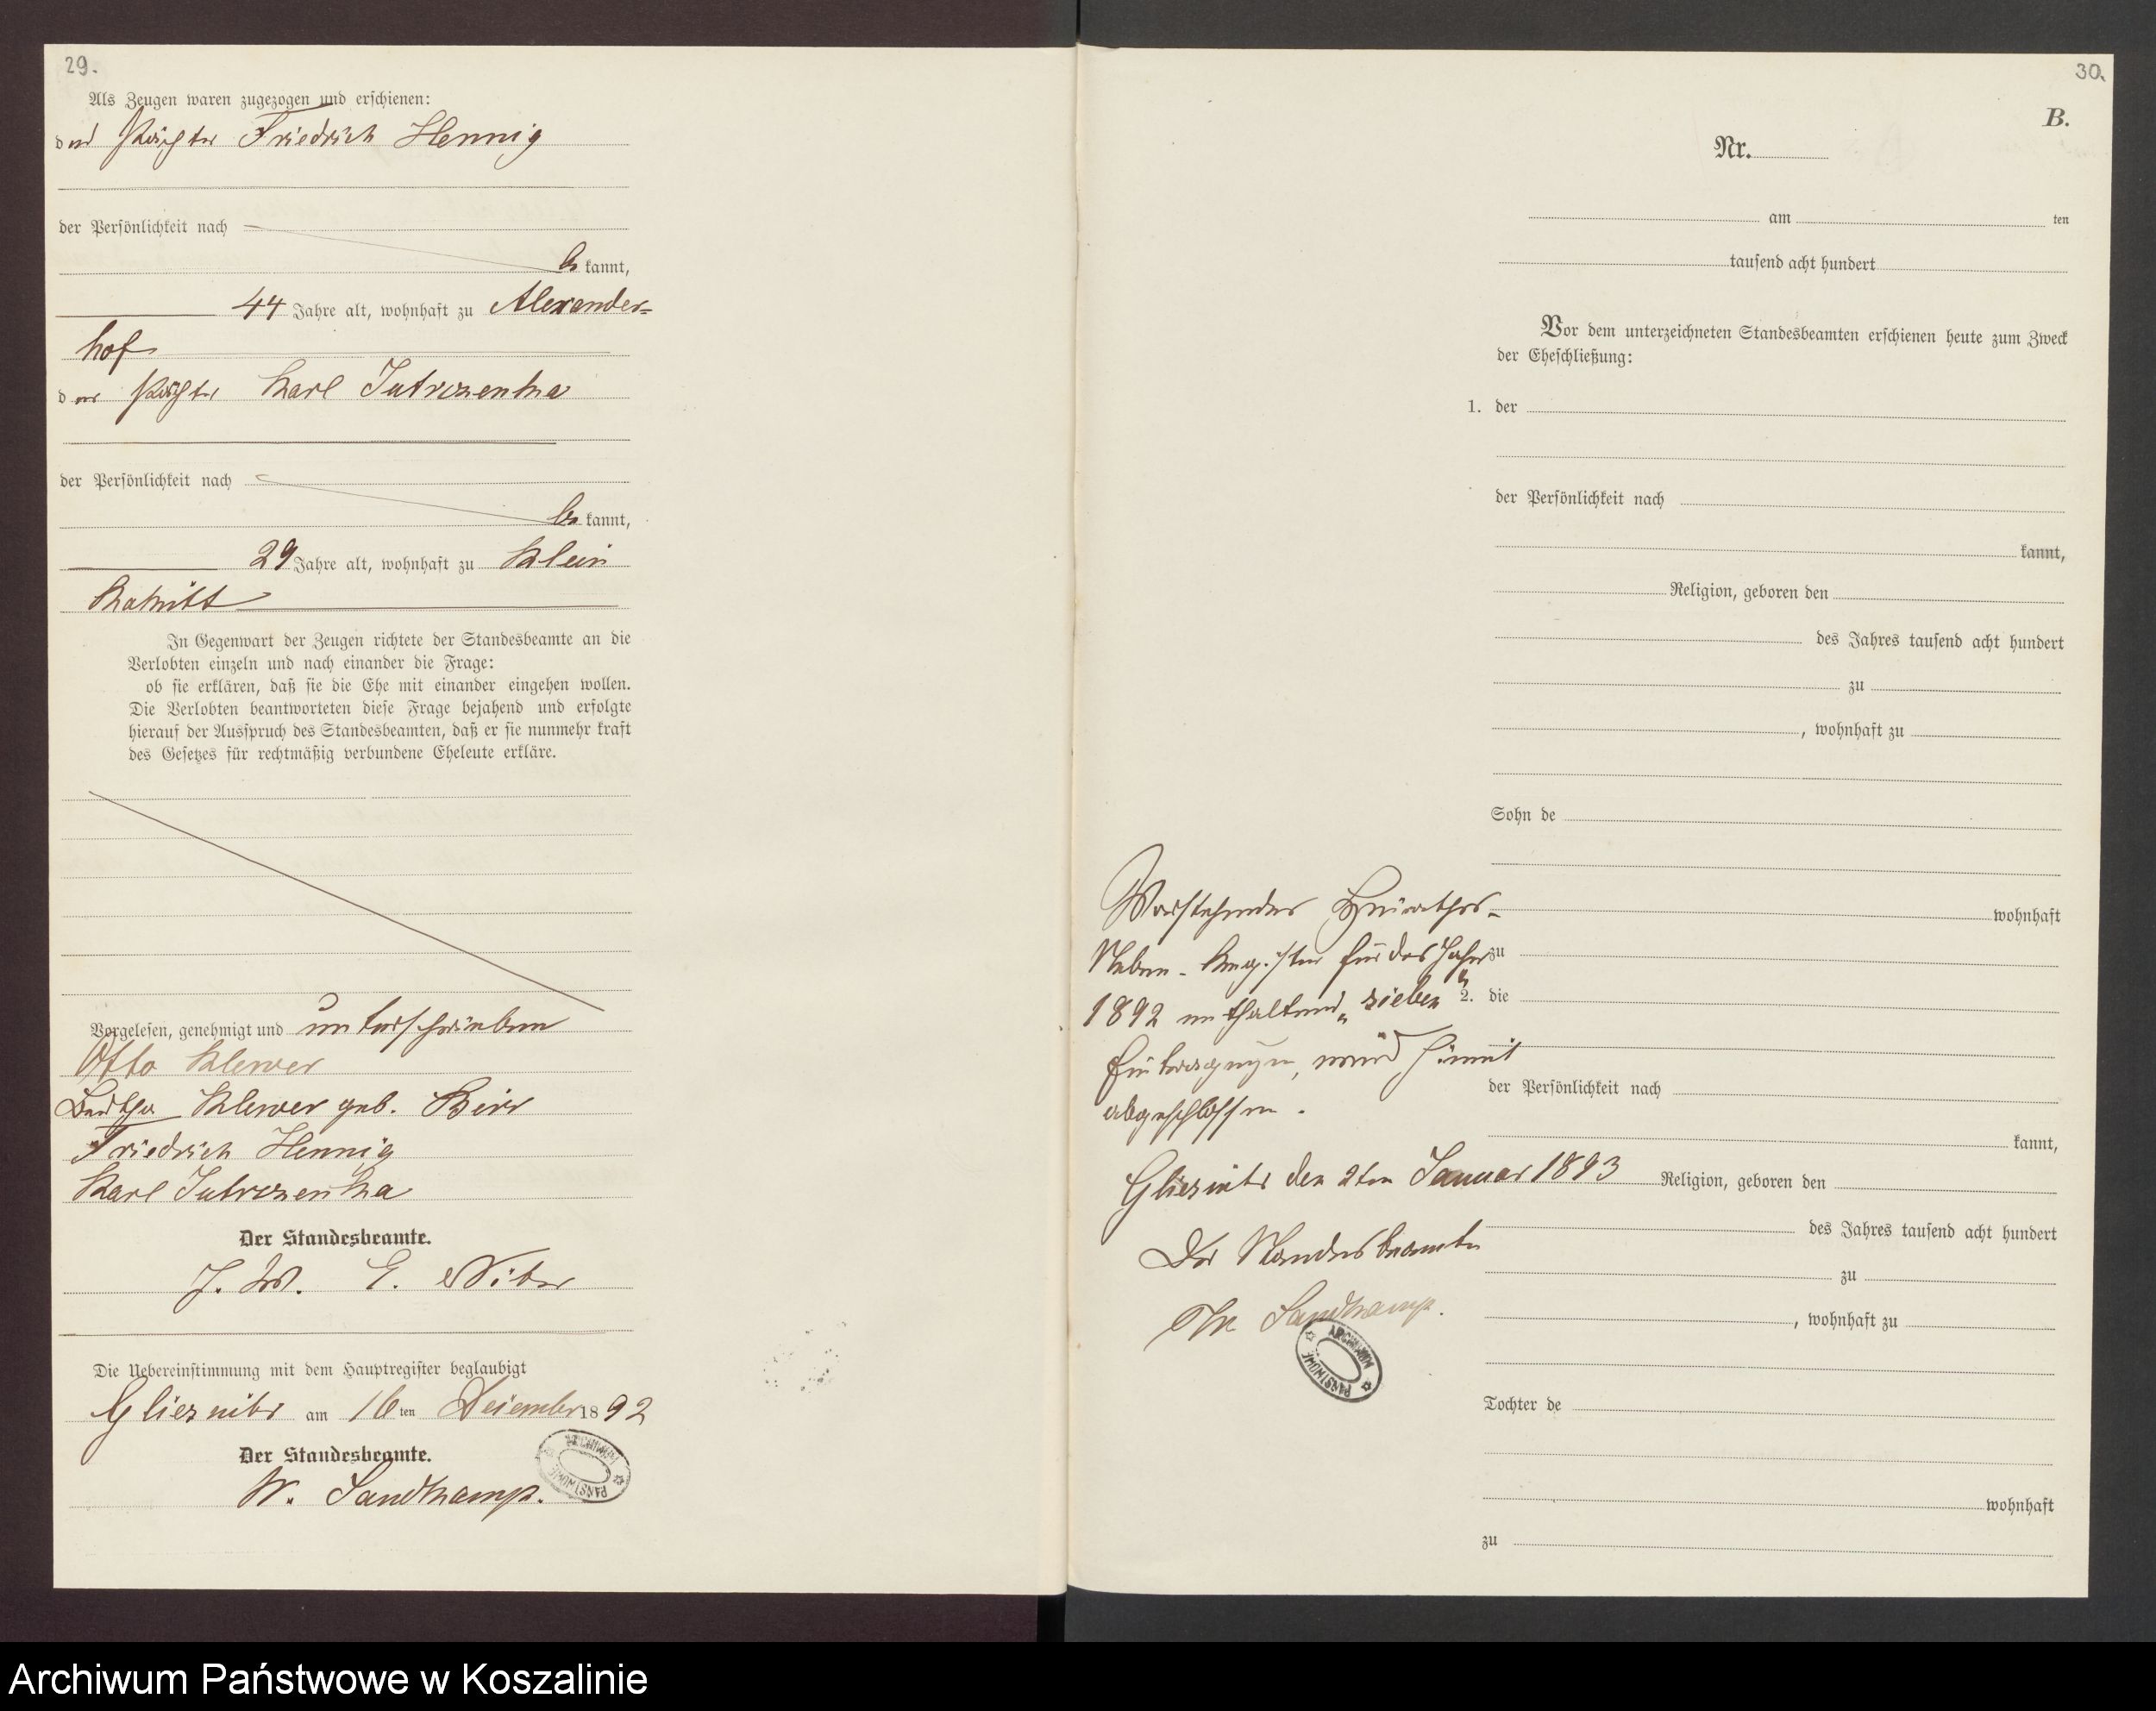 29.
Als Zeugen waren zugezogen und erschienen:
der Pächter Friedrich Hennig
der Persönlichkeit nach
be kannt,
44 Jahre alt, wohnhaft zu Alexander-
hof
der Pächter Karl Jutrzenka
der Persönlichkeit nach
be kannt,
29 Jahre alt, wohnhaft zu Klein
Katnitt
In Gegenwart der Zeugen richtete der Standesbeamte an die
Verlobten einzeln und nach einander die Frage:
ob sie erklären, daß sie die Ehe mit einander eingehen wollen.
Die Verlobten beantworteten diese Frage bejahend und erfolgte
hierauf der Ausspruch des Standesbeamten, daß er sie nunmehr kraft
des Gesetzes für rechtmäßig verbundene Eheleute erkläre.
Vorgelesen, genehmigt und unterschrieben
Otto Klewer
Bertha Klewer geb. Birr
Friedrich Hennig
Karl Jutrzenka
Der Standesbeamte.
J. V.
Die Uebereinstimmung mit dem Hauptregister beglaubigt
Gliesnitz am 16 ten Dezember 18 92
Der Standesbeamte.
W. Sandkamp.
ARCHIWUM PAŃSTWOWE
30.
B.
Nr.
am ten
tausend acht hundert
Vor dem unterzeichneten Standesbeamten erschienen heute zum Zweck
der Eheschließung:
1. der
der Persönlichkeit nach
kannt,
Religion, geboren den
des Jahres tausend acht hundert
zu
, wohnhaft zu
Sohn de
wohnhaft
zu
2. die
der Persönlichkeit nach
kannt,
Religion, geboren den
des Jahres tausend acht hundert
zu
, wohnhaft zu
Tochter de
wohnhaft
zu
Vorstehendes Heiraths-
Neben-Register für das Jahr
1892 enthaltend „sieben“
Eintragungen, wird hiermit
abgeschlossen.
Gliesnitz den 2ten Januar 1893
Der Standesbeamte
Sandkamp.
ARCHIWUM PAŃSTWOWE
Archiwum Państwowe w Koszalinie